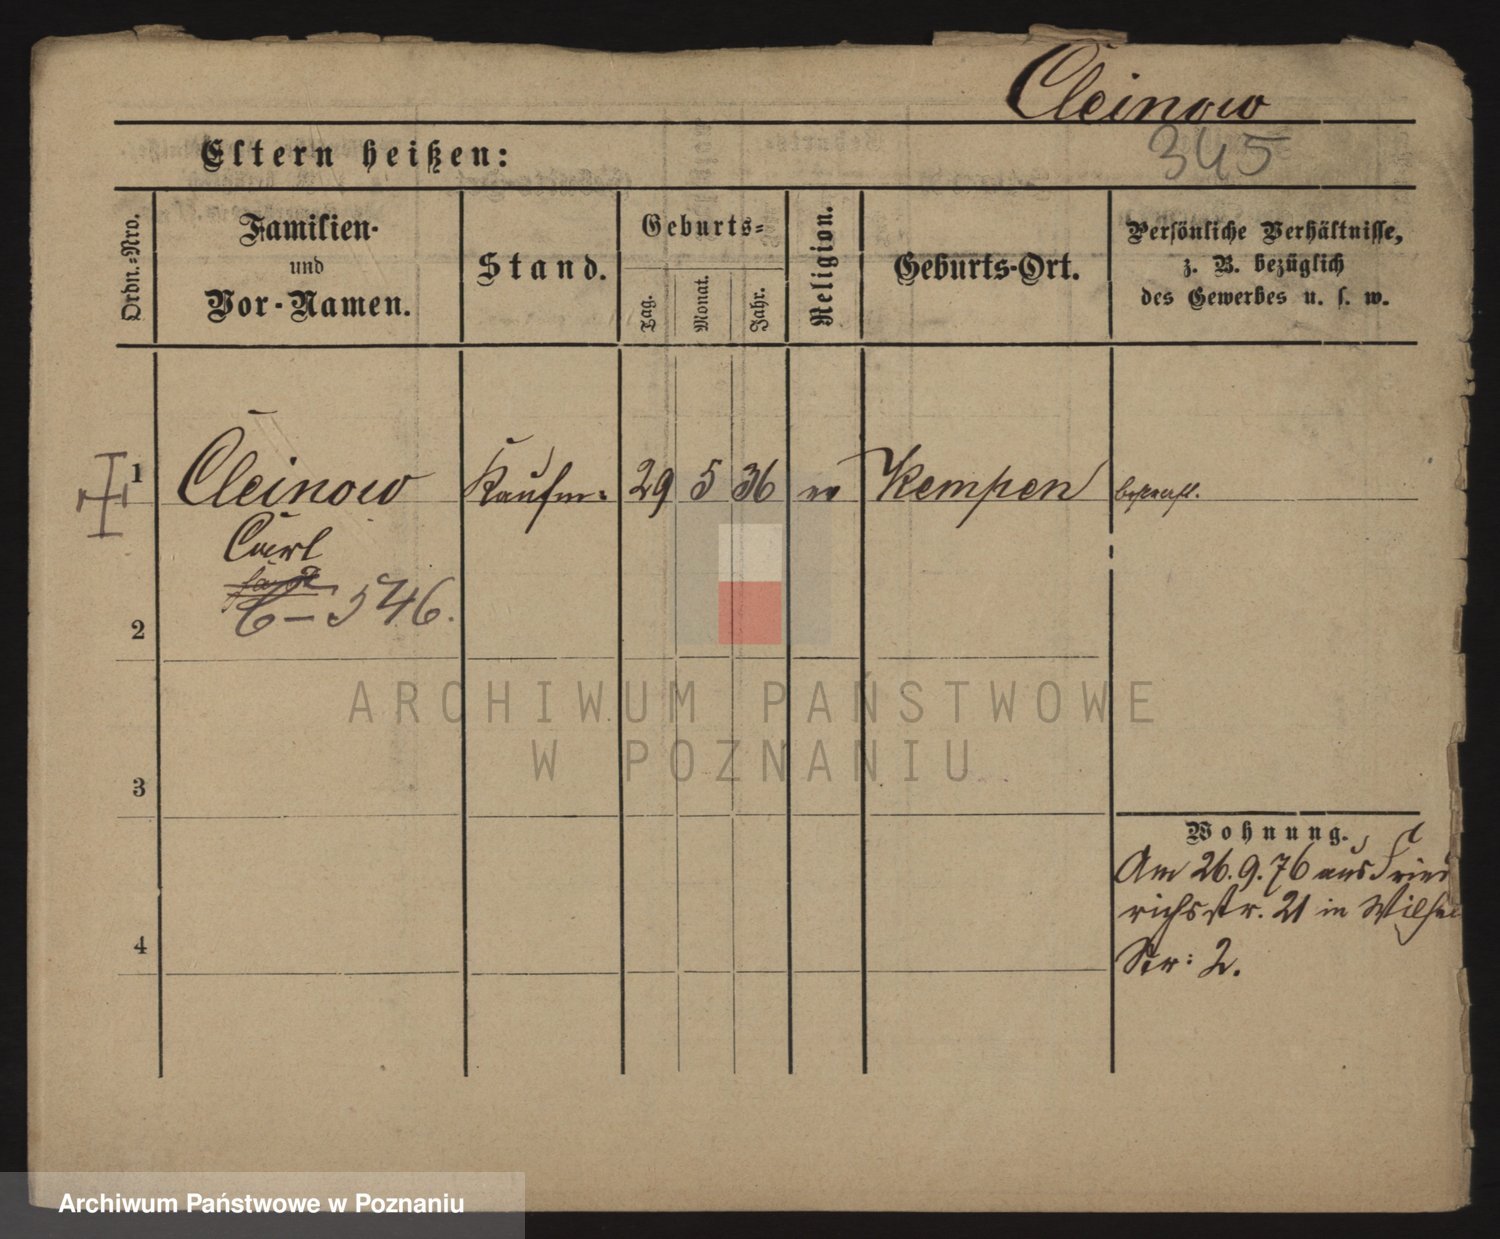 Cleinow
345
Eltern heißen:
Ordn.-Nro.
Familien-
und
Vor-Namen.
Stand.
Geburts-
Tag.
Monat.
Jahr.
Religion.
Geburts-Ort.
Persönliche Verhältnisse,
z. B. bezüglich
des Gewerbes u. s. w.
1
Cleinow Kaufm: 29 5 36 ev Kempen
Carl
C – 546.
2
ARCHIWUM PAŃSTWOWE
W POZNANIU
3
Wohnung.
Am 26.9.76 aus Fried
richsstr. 21 in Wilhel
Str: 2.
4
Archiwum Państwowe w Poznaniu